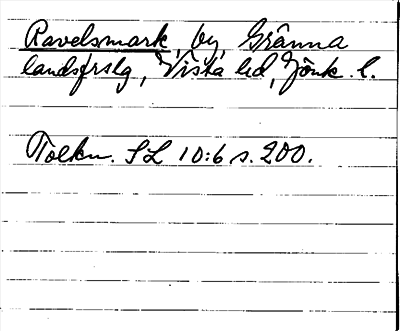 Ravelsmark, by, Gränna
landsfrslg, Vista hd, Jönk. l.
Tolkn. SL 10:6 s. 200.